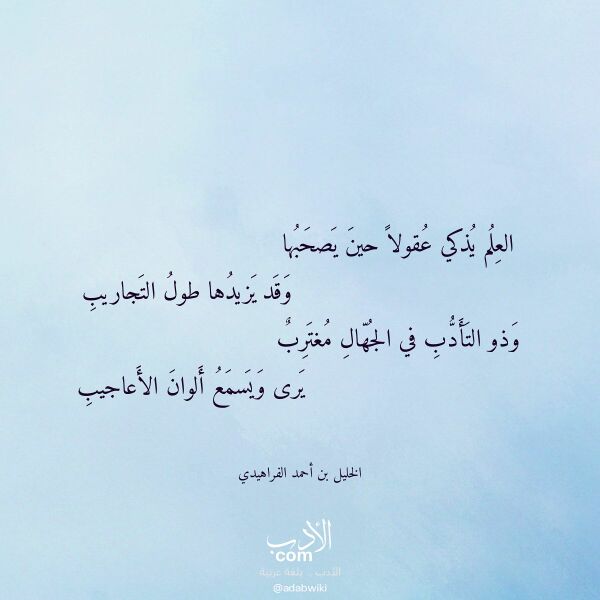 العِلُم يُذكي عُقولاً حينَ يَصحَبُها
وَقَد يَزيدُها طولُ التَجاريبِ
وَذو التَأَدُّبِ في الجُهّالِ مُغتَرِبٌ
يَرى وَيَسمَعُ أَلوانَ الأَعاجيبِ
الخليل بن أحمد الفراهيدي
الأدب
com
الأدب .. بلغة عربية
@adabwiki